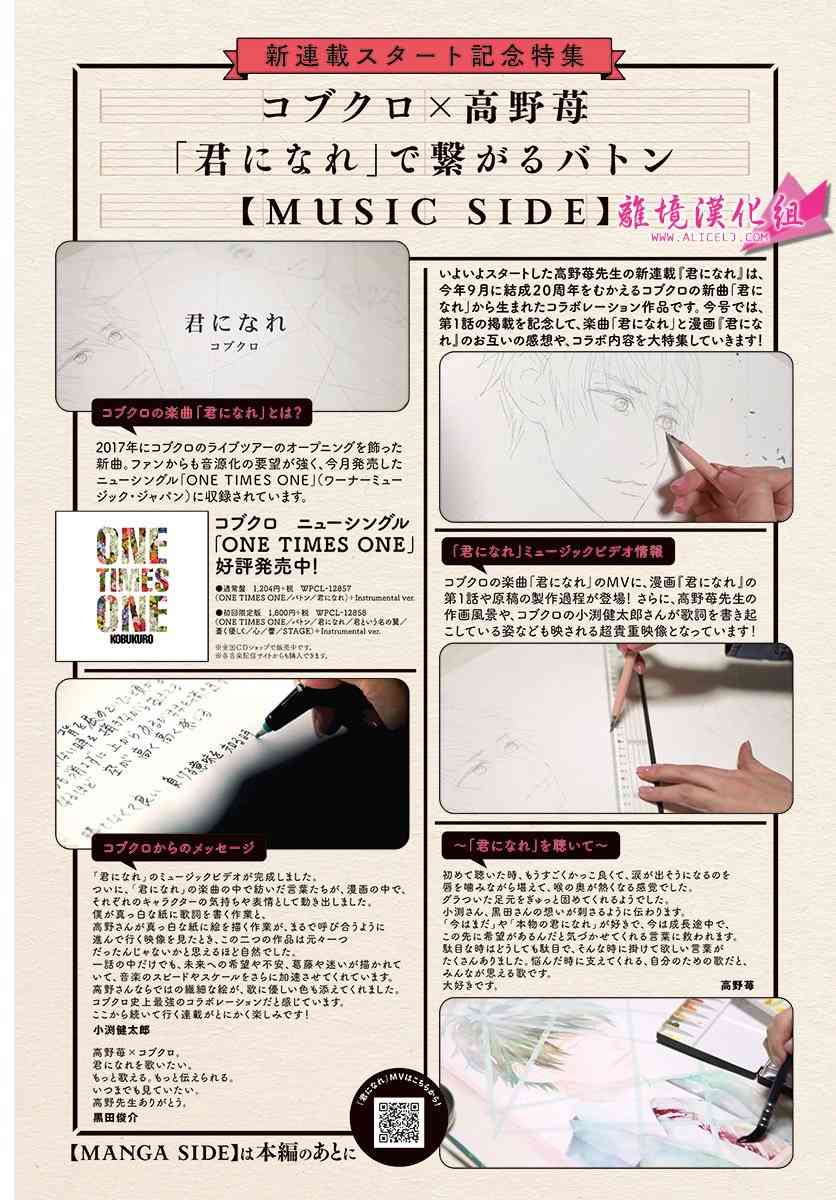 新連載スタート記念特集
コブクロ×高野苺
「君になれ」で繋がるバトン
【MUSIC SIDE】
離境漢化組
WWW.ALICELJ.COM
君になれ
コブクロ
コブクロの楽曲「君になれ」とは?
2017年にコブクロのライブツアーのオープニングを飾った
新曲。ファンからも音源化の要望が強く、今月発売した
ニューシングル「ONE TIMES ONE」(ワーナーミュー
ジック・ジャパン)に収録されています。
ONE
TIMES
ONE
KOBUKURO
コブクロ ニューシングル
「ONE TIMES ONE」
好評発売中!
●通常盤 1,204円+税 WPCL-12857
(ONE TIMES ONE/バトン/君になれ)+Instrumental ver.
●初回限定版 1,800円+税 WPCL-12858
(ONE TIMES ONE/バトン/君になれ/君という名の翼/
蒼く優しく/心/響/STAGE)+Instrumental ver.
※全国CDショップで販売中です。
※各音楽配信サイトからも購入できます。
コブクロからのメッセージ
「君になれ」のミュージックビデオが完成しました。
ついに、「君になれ」の楽曲の中で紡いだ言葉たちが、漫画の中で、
それぞれのキャラクターの気持ちや表情として動き出しました。
僕が真っ白な紙に歌詞を書く作業と、
高野さんが真っ白な紙に絵を描く作業が、まるで呼び合うように
進んで行く映像を見たとき、この二つの作品は元々一つ
だったんじゃないかと思えるほど自然でした。
一話の中だけでも、未来への希望や不安、葛藤や迷いが描かれて
いて、音楽のスピードやスケールをさらに加速させてくれています。
高野さんならではの繊細な絵が、歌に優しい色も添えてくれました。
コブクロ史上最強のコラボレーションだと感じています。
ここから続いて行く連載がとにかく楽しみです!
小渕健太郎
高野苺×コブクロ。
君になれを歌いたい。
もっと歌える。もっと伝えられる。
いつまでも見ていたい。
高野先生ありがとう。
黒田俊介
「君になれ」MVはこちらから!
【MANGA SIDE】は本編のあとに
いよいよスタートした高野苺先生の新連載『君になれ』は、
今年9月に結成20周年をむかえるコブクロの新曲「君に
なれ」から生まれたコラボレーション作品です。今号では、
第1話の掲載を記念して、楽曲「君になれ」と漫画『君にな
れ』のお互いの感想や、コラボ内容を大特集していきます!
「君になれ」ミュージックビデオ情報
コブクロの楽曲「君になれ」のMVに、漫画『君になれ』の
第1話や原稿の製作過程が登場! さらに、高野苺先生の
作画風景や、コブクロの小渕健太郎さんが歌詞を書き起
こしている姿なども映される超貴重映像となっています!
〜「君になれ」を聴いて〜
初めて聴いた時、もうすごくかっこ良くて、涙が出そうになるのを
唇を噛みながら堪えて、喉の奥が熱くなる感覚でした。
グラついた足元をぎゅっと固めてくれるようでした。
小渕さん、黒田さんの想いが刺さるように伝わります。
「今はまだ」や「本物の君になれ」が好きで、今は成長途中で、
この先に希望があるんだと気づかせてくれる言葉に救われます。
駄目な時はどうしても駄目で、そんな時に掛けて欲しい言葉が
たくさんありました。悩んだ時に支えてくれる、自分のための歌だと、
みんなが思える歌です。
大好きです。
高野苺